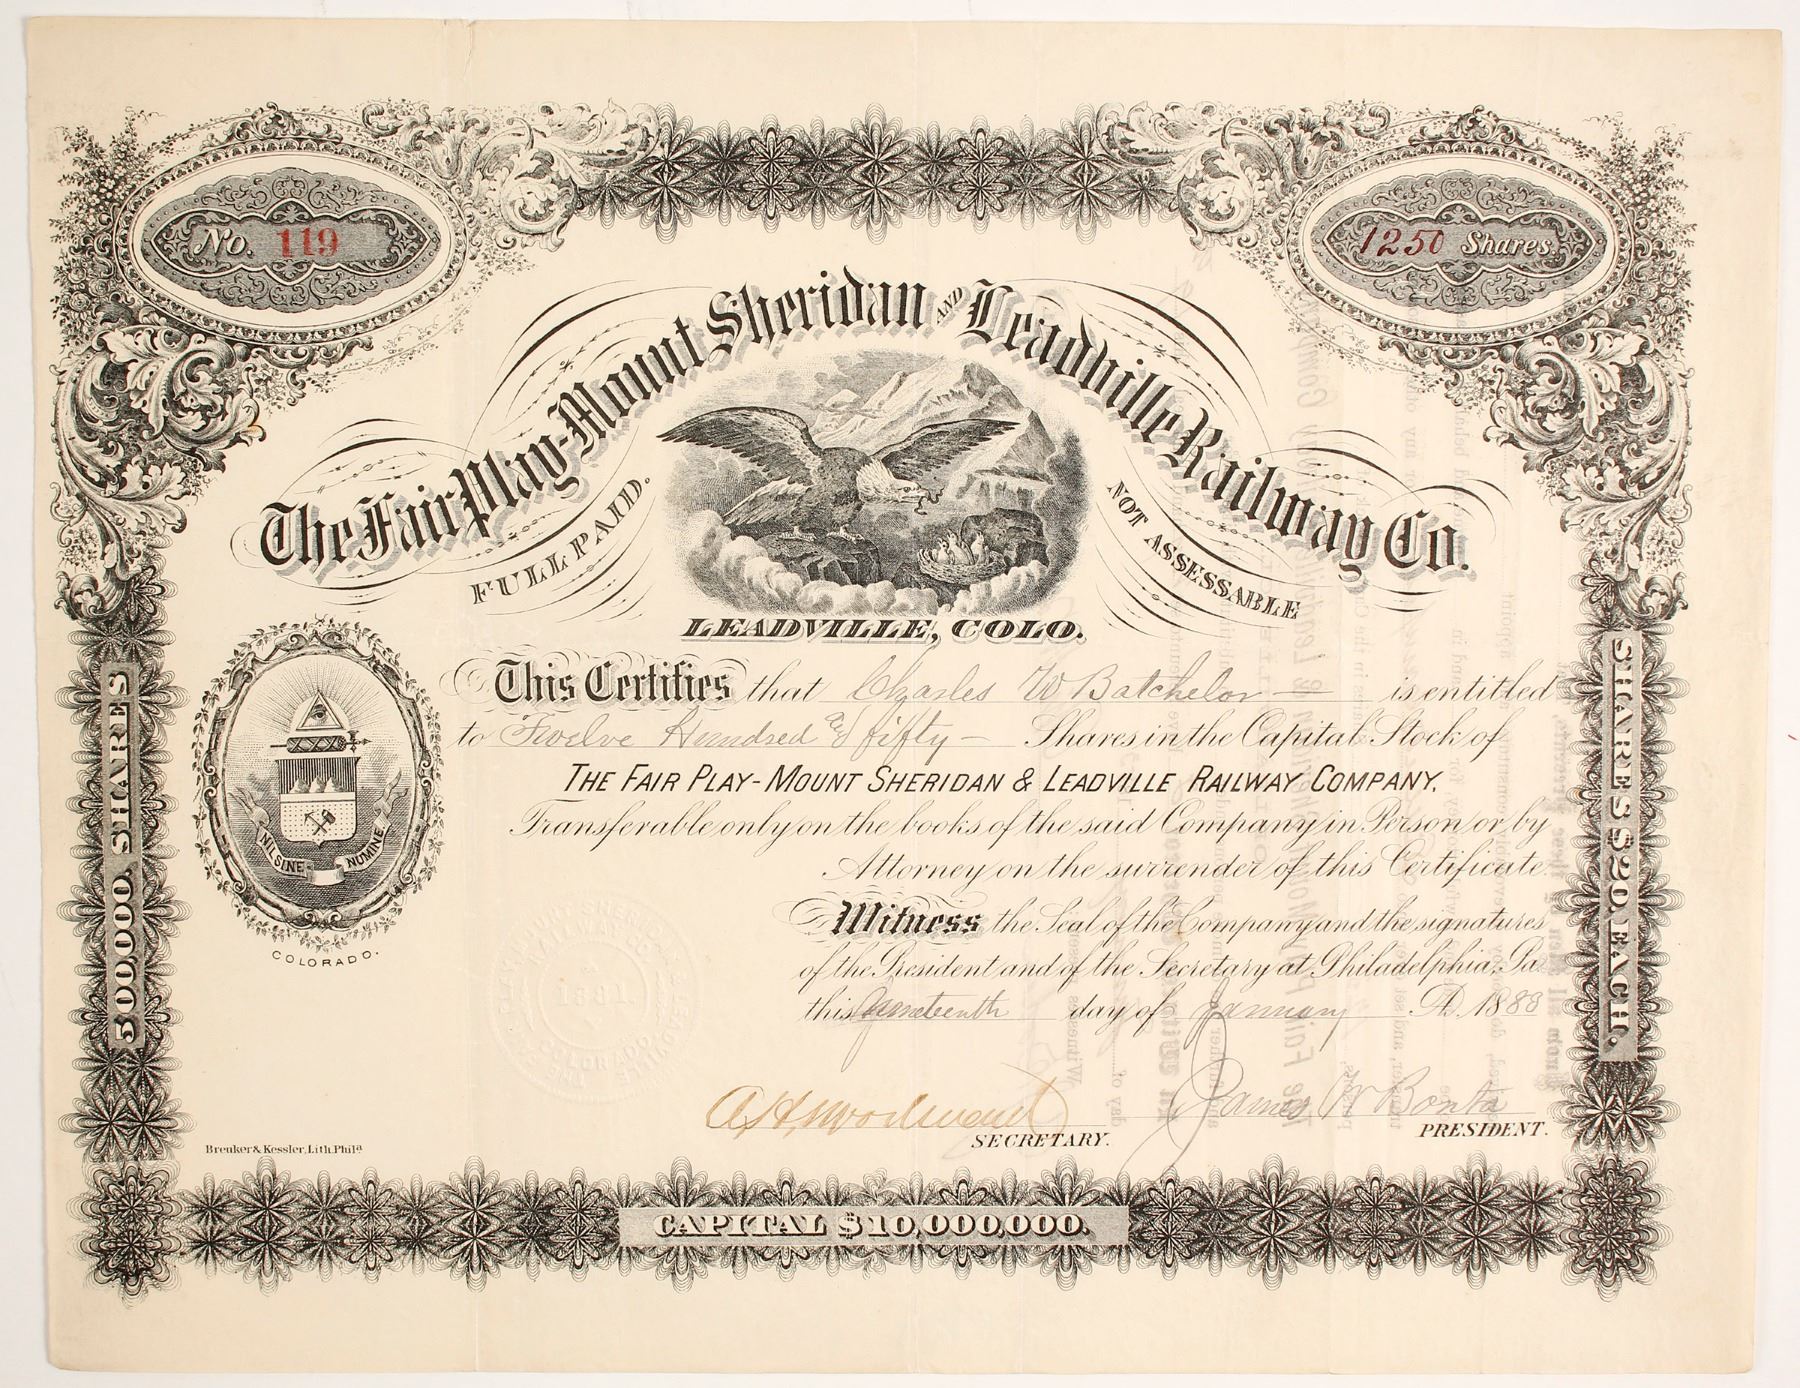 No. 119
1250 Shares.
The Fair Play-Mount Sheridan AND Leadville Railway Co.
FULL PAID.
NOT ASSESSABLE
LEADVILLE, COLO.
This Certifies that Charles W Batchelor — is entitled
to Twelve Hundred and fifty — Shares in the Capital Stock of
THE FAIR PLAY-MOUNT SHERIDAN & LEADVILLE RAILWAY COMPANY.
Transferable only on the books of the said Company in Person or by
Attorney on the surrender of this Certificate.
Witness the Seal of the Company and the signatures
of the President and of the Secretary at Philadelphia, Pa.
this Nineteenth day of January A.D. 1888
NIL SINE NUMINE
COLORADO.
1881.
COLORADO
500,000 SHARES
SHARES $20 EACH.
A. H. Woodward
SECRETARY.
James W Bonta
PRESIDENT.
Breuker & Kessler, Lith. Phila.
CAPITAL $10,000,000.